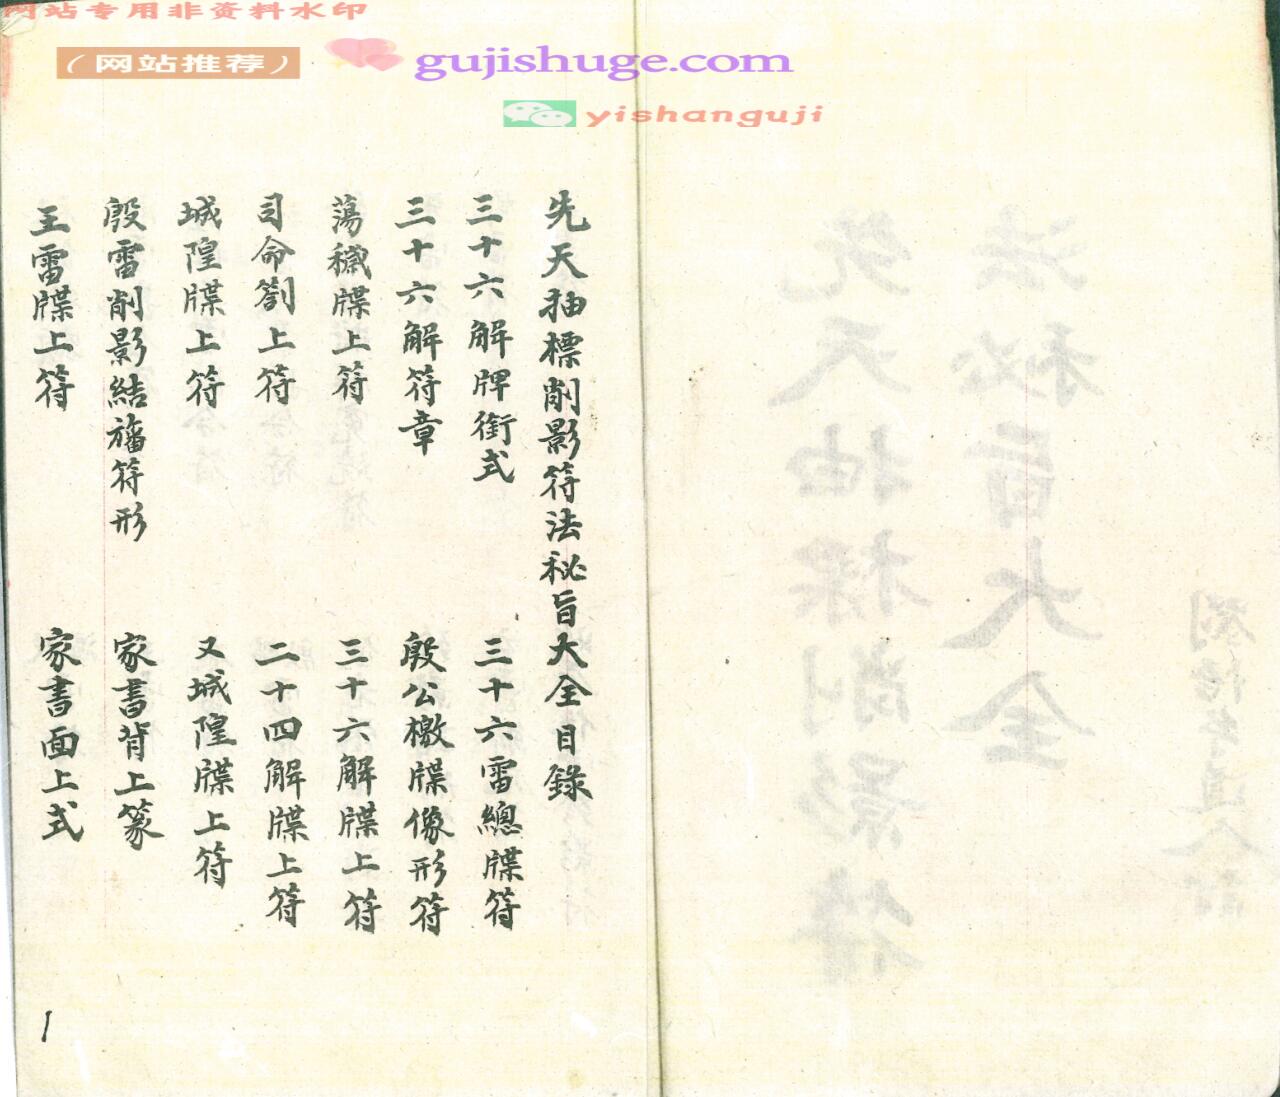 网站专用非资料水印
（网站推荐）
gujishuge.com
yishanguji
先天抽標削影符法秘旨大全目錄
三十六解牌銜式
三十六雷總牒符
三十六解符章
殷公檄牒像形符
蕩穢牒上符
三十六解牒上符
司命劄上符
二十四解牒上符
城隍牒上符
又城隍牒上符
殷雷削影結旛符形
家書背上篆
王雷牒上符
家書面上式
1
法秘旨大全
先天抽標削影符